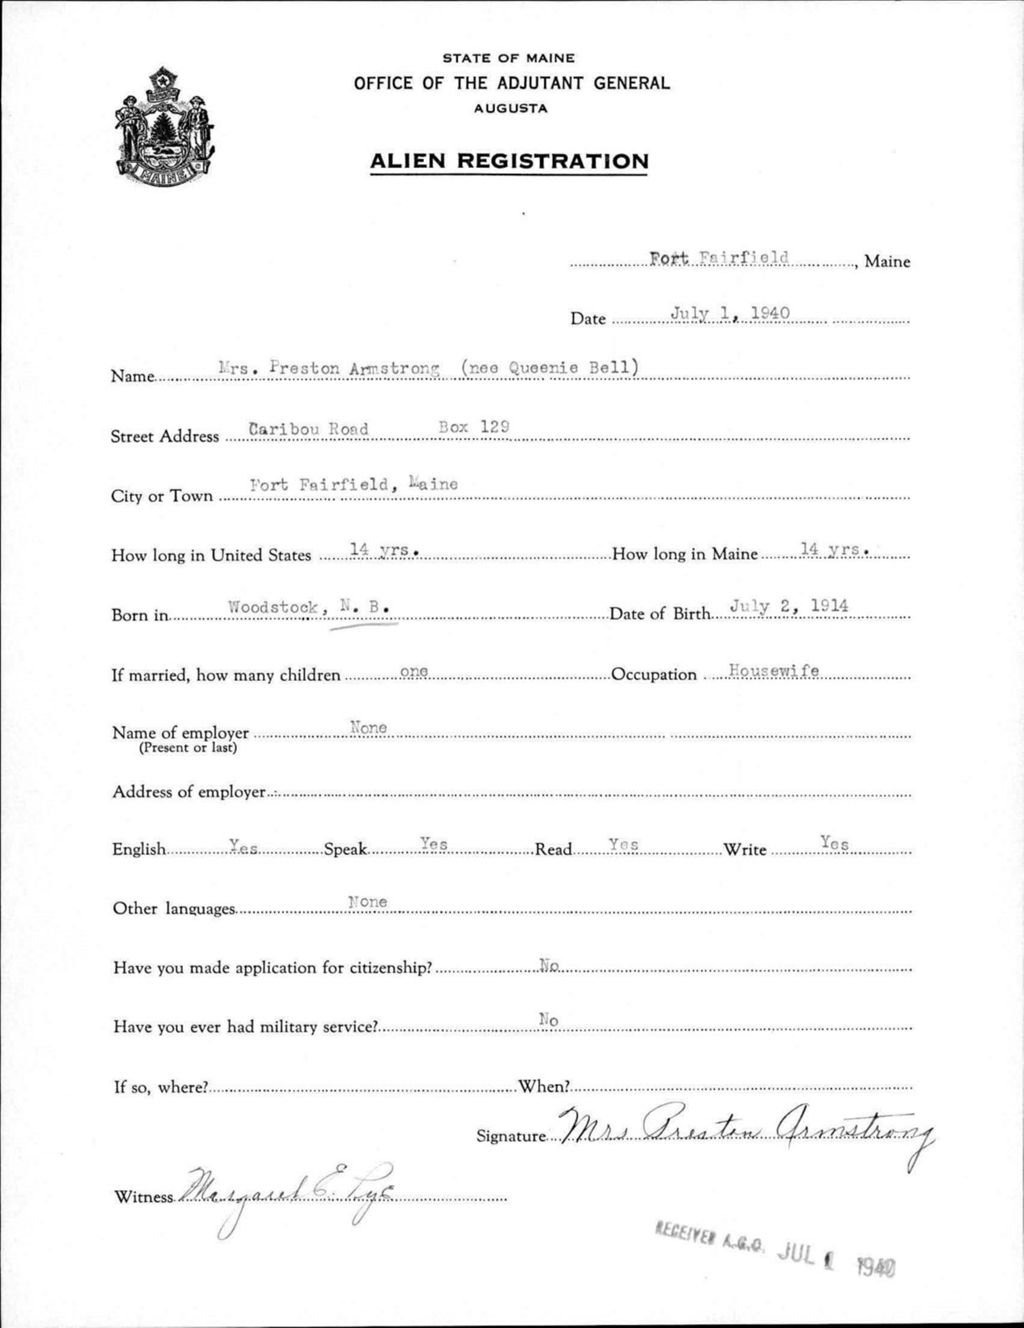 STATE OF MAINE
OFFICE OF THE ADJUTANT GENERAL
AUGUSTA
ALIEN REGISTRATION
MAINE
Fort Fairfield, Maine
Date July 1, 1940
Name Mrs. Preston Armstrong (nee Queenie Bell)
Street Address Caribou Road Box 129
City or Town Fort Fairfield, Maine
How long in United States 14 yrs. How long in Maine 14 yrs.
Born in Woodstock, N. B. Date of Birth July 2, 1914
If married, how many children one Occupation Housewife
Name of employer None
(Present or last)
Address of employer
English Yes Speak Yes Read Yes Write Yes
Other languages None
Have you made application for citizenship? No
Have you ever had military service? No
If so, where? When?
Signature Mrs Preston Armstrong
Witness Margaret E. Pye
RECEIVED A.G.O. JUL 1 1940